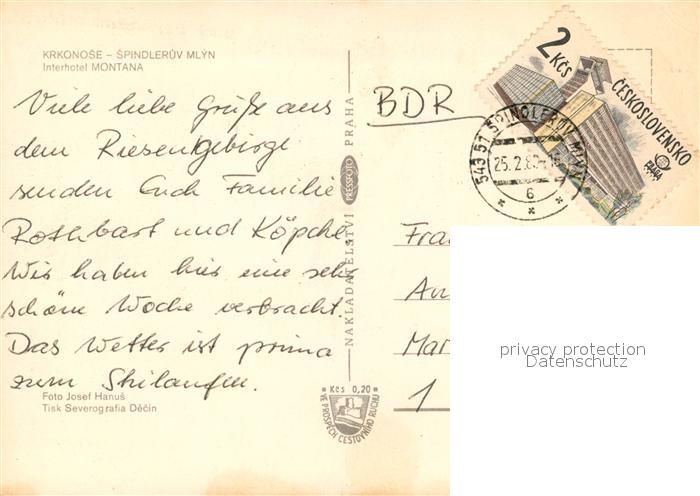 KRKONOŠE – ŠPINDLERŮV MLÝN
Interhotel MONTANA
Viele liebe Grüße aus
dem Riesengebirge
senden Euch Familie
Rothbart und Köpche
Wir haben hier eine sehr
schöne Woche verbracht.
Das Wetter ist prima
zum Skilaufen.
Foto Josef Hanuš
Tisk Severografia Děčín
NAKLADATELSTVÍ PRESSFOTO PRAHA
Kčs 0,20
VE PROSPĚCH CESTOVNÍHO RUCHU
BDR
2 Kčs
ČESKOSLOVENSKO
PRAHA
543 51 ŠPINDLERŮV MLÝN
6
Fra
An
Mar
1
privacy protection
Datenschutz